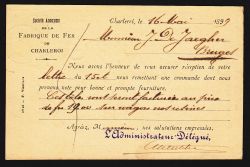 Société Anonyme
DE LA
FABRIQUE DE FER
DE CHARLEROI
Charleroi, le 16 Mai 1899
Monsieur J. De Jaegher
Bruges
Nous avons l'honneur de vous accuser réception de votre
lettre du 15 ct nous remettant une commande dont nous
prenons note pour bonne et prompte fourniture.
de frs 19.00 sur wagon nos usines
Agréez, M nos salutations empressées.
L'Administrateur-Délégué,